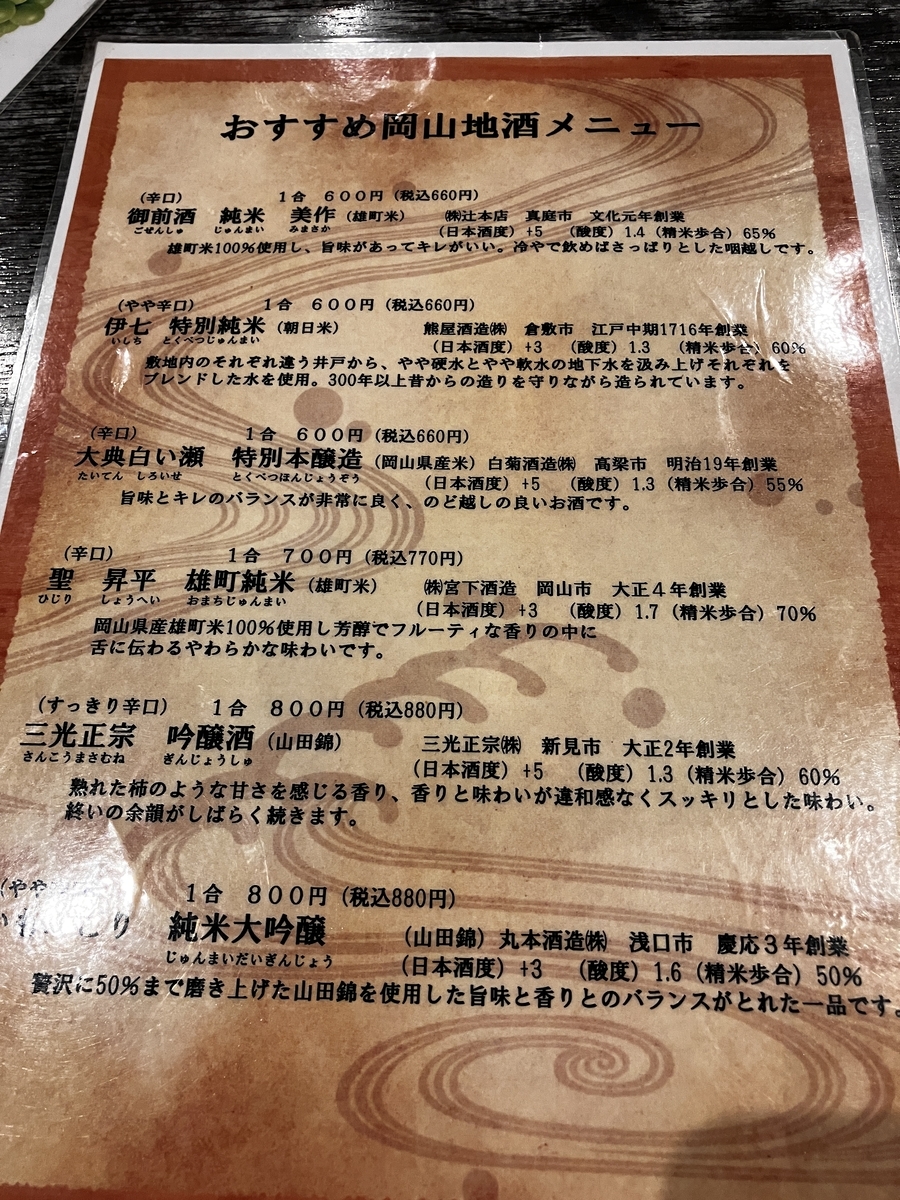 おすすめ岡山地酒メニュー
(辛口) 1合 600円 (税込660円)
御前酒 純米 美作 (雄町米) ㈱辻本店 真庭市 文化元年創業
ごぜんしゅ じゅんまい みまさか (日本酒度) +5 (酸度) 1.4 (精米歩合) 65%
雄町米100%使用し、旨味があってキレがいい。冷やで飲めばさっぱりとした咽越しです。
(やや辛口) 1合 600円 (税込660円)
伊七 特別純米 (朝日米) 熊屋酒造㈱ 倉敷市 江戸中期1716年創業
いしち とくべつじゅんまい (日本酒度) +3 (酸度) 1.3 (精米歩合) 60%
敷地内のそれぞれ違う井戸から、やや硬水とやや軟水の地下水を汲み上げそれぞれを
ブレンドした水を使用。300年以上昔からの造りを守りながら造られています。
(辛口) 1合 600円 (税込660円)
大典白い瀬 特別本醸造 (岡山県産米) 白菊酒造㈱ 高梁市 明治19年創業
たいてん しろいせ とくべつほんじょうぞう (日本酒度) +5 (酸度) 1.3 (精米歩合) 55%
旨味とキレのバランスが非常に良く、のど越しの良いお酒です。
(辛口) 1合 700円 (税込770円)
聖 昇平 雄町純米 (雄町米) ㈱宮下酒造 岡山市 大正4年創業
ひじり しょうへい おまちじゅんまい (日本酒度) +3 (酸度) 1.7 (精米歩合) 70%
岡山県産雄町米100%使用し芳醇でフルーティな香りの中に
舌に伝わるやわらかな味わいです。
(すっきり辛口) 1合 800円 (税込880円)
三光正宗 吟醸酒 (山田錦) 三光正宗㈱ 新見市 大正2年創業
さんこうまさむね ぎんじょうしゅ (日本酒度) +5 (酸度) 1.3 (精米歩合) 60%
熟れた柿のような甘さを感じる香り、香りと味わいが違和感なくスッキリとした味わい。
終いの余韻がしばらく続きます。
(やや 1合 800円 (税込880円)
純米大吟醸 (山田錦) 丸本酒造㈱ 浅口市 慶応3年創業
じゅんまいだいぎんじょう (日本酒度) +3 (酸度) 1.6 (精米歩合) 50%
贅沢に50%まで磨き上げた山田錦を使用した旨味と香りとのバランスがとれた一品です。